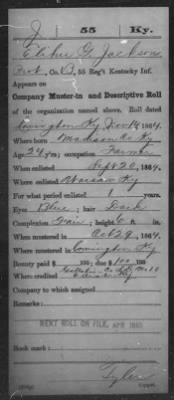 J | 55 | Ky.
Elihu G. Jackson
, Co. B, 55 Reg't Kentucky Inf.
Appears on
Company Muster-in and Descriptive Roll
of the organization named above. Roll dated
Covington Ky Nov 14, 1864.
Where born Madison Co Ky
Age 24 y'rs; occupation Farmer
When enlisted Sept 20, 1864.
Where enlisted Ky
For what period enlisted years.
Eyes Blue; hair Dark
Complexion Fair; height 6 ft. in.
When mustered in Oct 29, 1864.
Where mustered in Covington Ky
Bounty paid $ 100; due $ 100
Where credited
Company to which assigned
Remarks:
NEXT ROLL ON FILE, APR 1865
Book mark:
Tyler
Copyist.